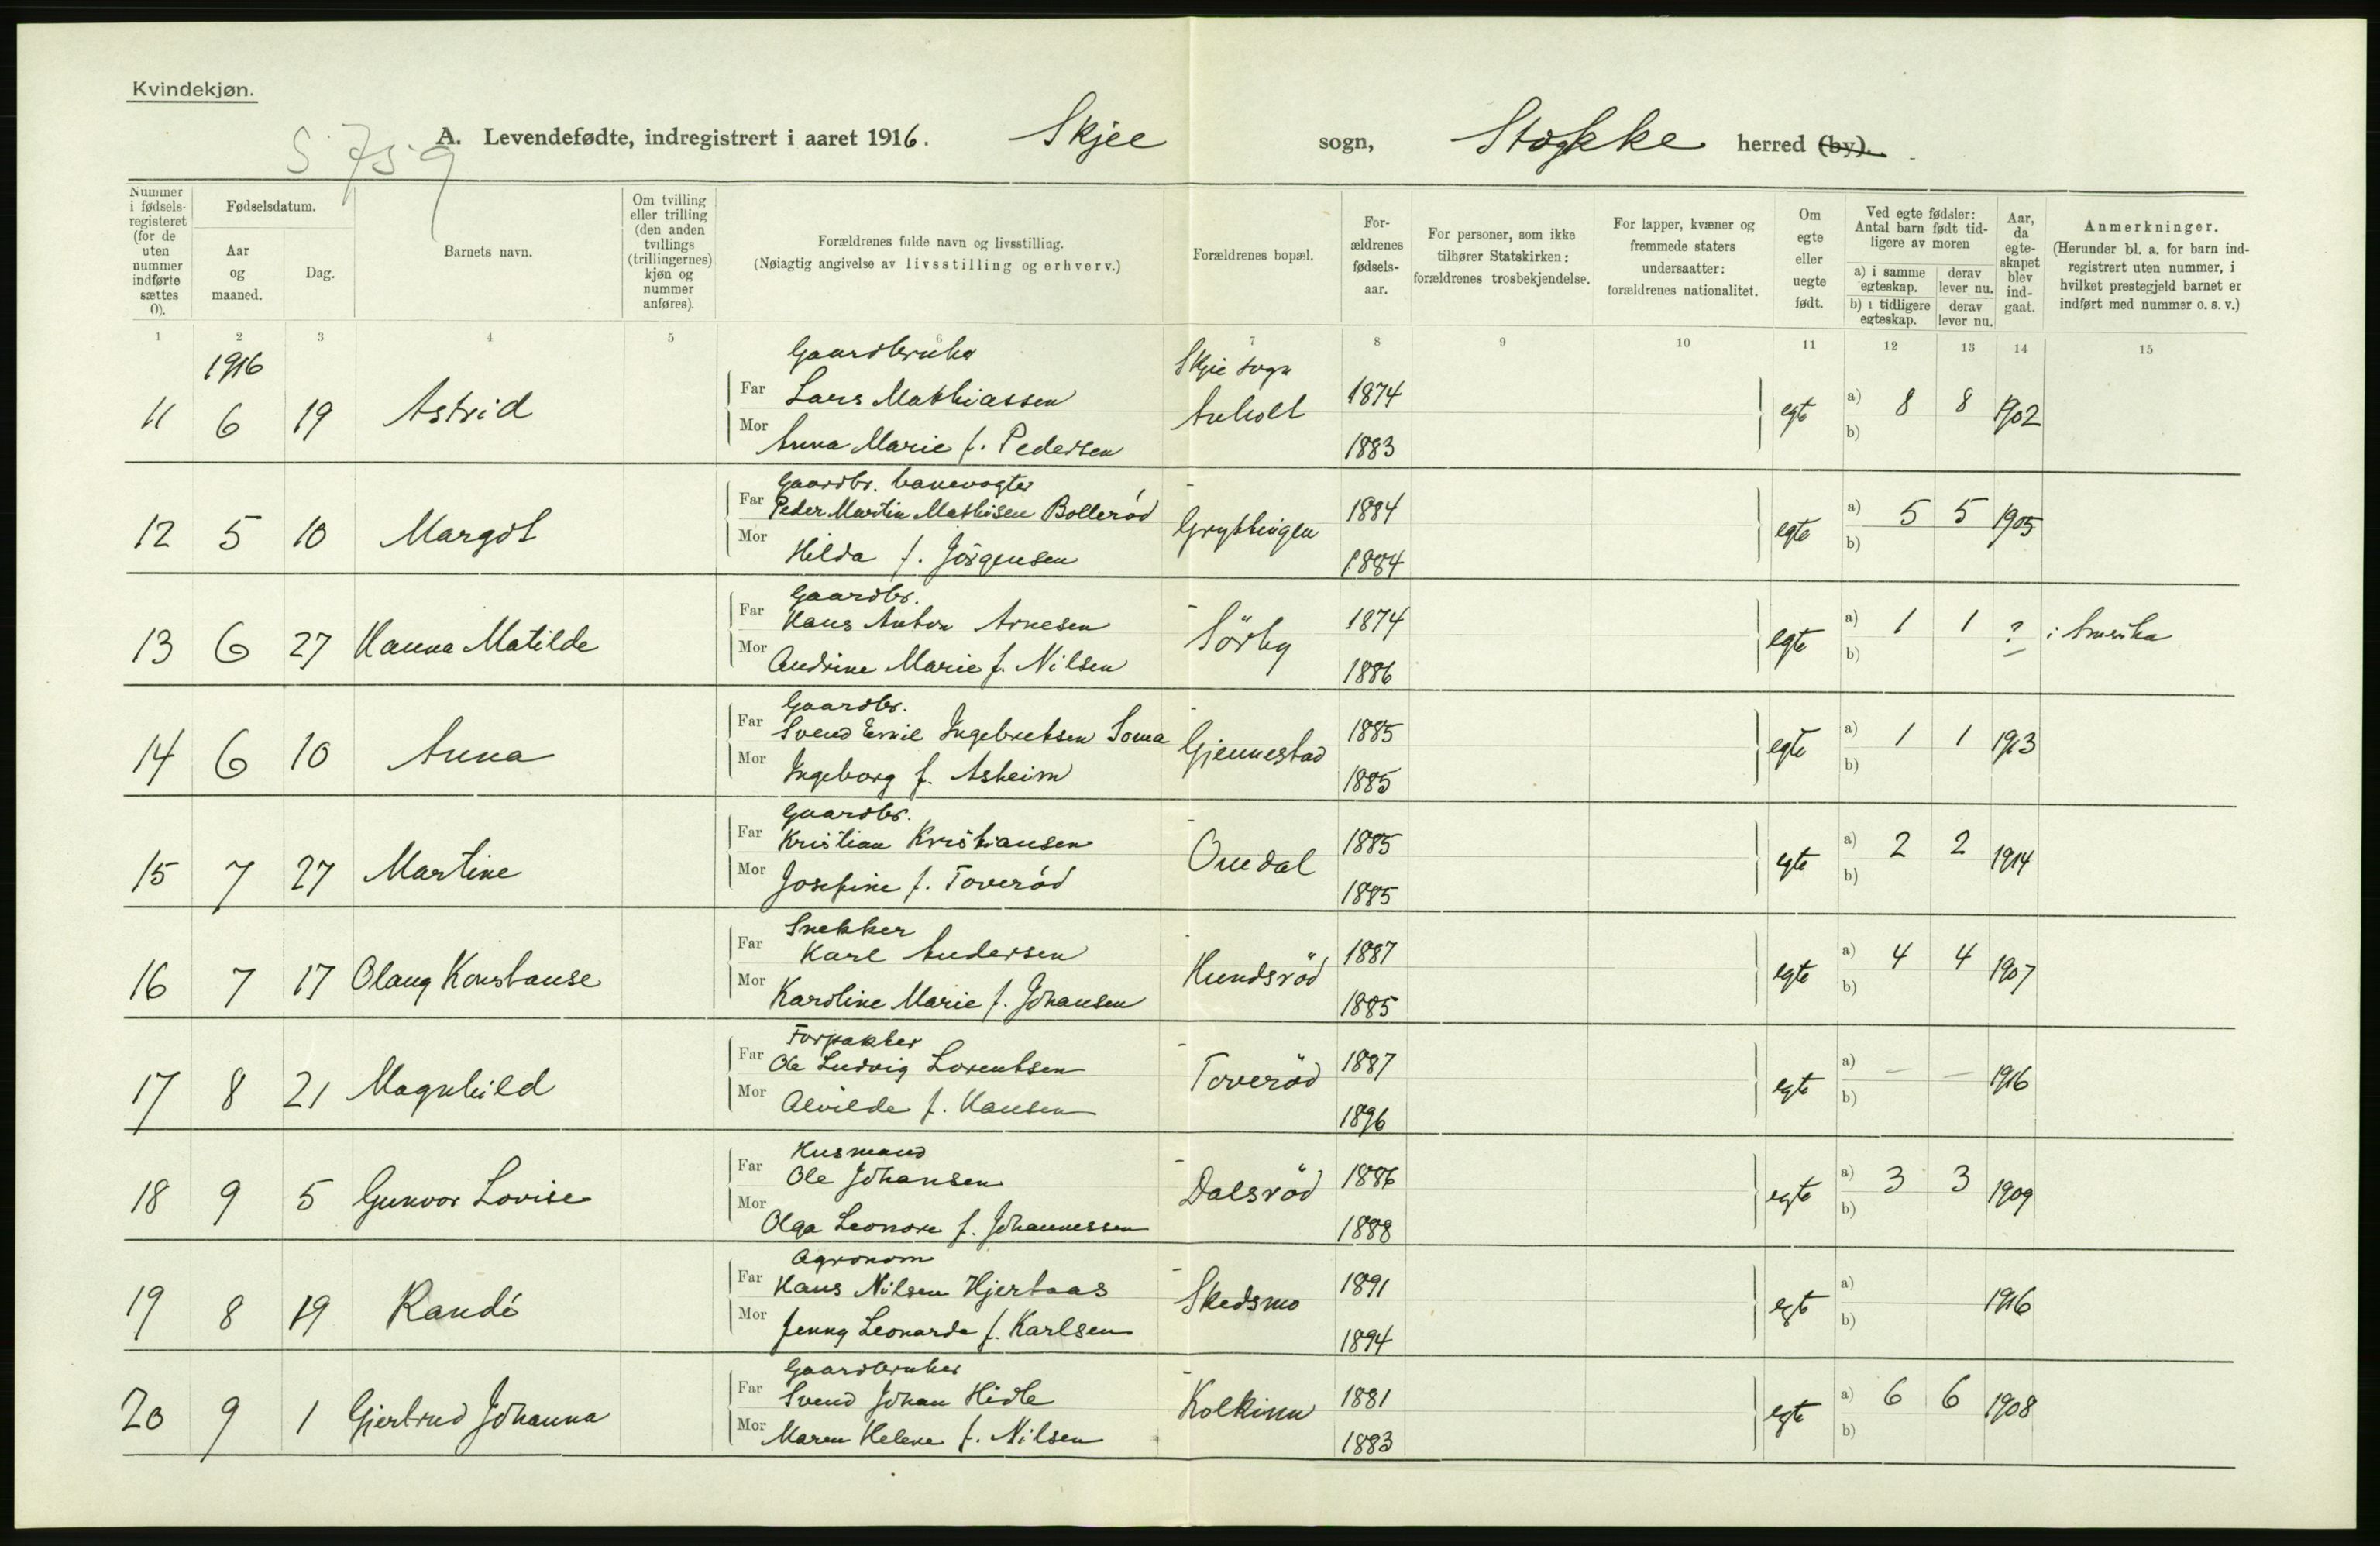 Kvindekjøn.
S. 759
A. Levendefødte, indregistrert i aaret 1916. Skjee sogn, Stokke herred (by).
Nummer i fødsels-registeret (for de uten nummer indførte sættes 0).
Fødselsdatum.
Aar og maaned.
Dag.
Barnets navn.
Om tvilling eller trilling (den anden tvillings (trillingernes) kjøn og nummer anføres).
Forældrenes fulde navn og livsstilling.
(Nøiagtig angivelse av livsstilling og erhverv.)
Forældrenes bopæl.
For-ældrenes fødsels-aar.
For personer, som ikke tilhører Statskirken: forældrenes trosbekjendelse.
For lapper, kvæner og fremmede staters undersaatter: forældrenes nationalitet.
Om egte eller uegte født.
Ved egte fødsler: Antal barn født tid-ligere av moren
a) i samme egteskap.
derav lever nu.
b) i tidligere egteskap.
derav lever nu.
Aar, da egte-skapet blev ind-gaat.
Anmerkninger.
(Herunder bl. a. for barn ind-registrert uten nummer, i hvilket prestegjeld barnet er indført med nummer o. s. v.)
1 2 3 4 5 6 7 8 9 10 11 12 13 14 15
1916
Gaardbruker
Skjee sogn
11 6 19 Astrid Far Lars Mathiassen Anholt 1874 egte a) 8 8 1902
Mor Anna Marie f. Pedersen 1883 b)
Gaardbr. banevogter
12 5 10 Margot Far Peder Martin Mathisen Bollerød Gryttingen 1884 egte a) 5 5 1905
Mor Hilda f. Jörgensen 1884 b)
Gaardbr.
13 6 27 Hanna Matilde Far Hans Anton Arnesen Sörby 1874 egte a) 1 1 ? i Amerika
Mor Andrine Marie f. Nilsen 1886 b)
Gaardbr.
14 6 10 Anna Far Svend Emil Ingebretsen Soma Gjennestad 1885 egte a) 1 1 1913
Mor Ingeborg f. Asheim 1885 b)
Gaardbr.
15 7 27 Martine Far Kristian Kristiansen Omdal 1885 egte a) 2 2 1914
Mor Josefine f. Toverød 1885 b)
Snekker
16 7 17 Olaug Konstanse Far Karl Andersen Hundsröd 1887 egte a) 4 4 1907
Mor Karoline Marie f. Johansen 1885 b)
Forpakter
17 8 21 Magnhild Far Ole Ludvig Lorentsen Toveröd 1887 egte a) — — 1916
Mor Alvilde f. Hansen 1896 b)
Husmand
18 9 5 Gunvor Lovise Far Ole Johansen Dalsröd 1886 egte a) 3 3 1909
Mor Olga Leonore f. Johannessen 1888 b)
Agronom
19 8 19 Randi Far Hans Nilsen Hjertaas Skedsmo 1891 egte a) 1916
Mor Jenny Leonarda f. Karlsen 1894 b)
Gaardbruker
20 9 1 Gjertrud Johanna Far Svend Johan Hidle Kolkinn 1881 egte a) 6 6 1908
Mor Maren Helene f. Nilsen 1883 b)